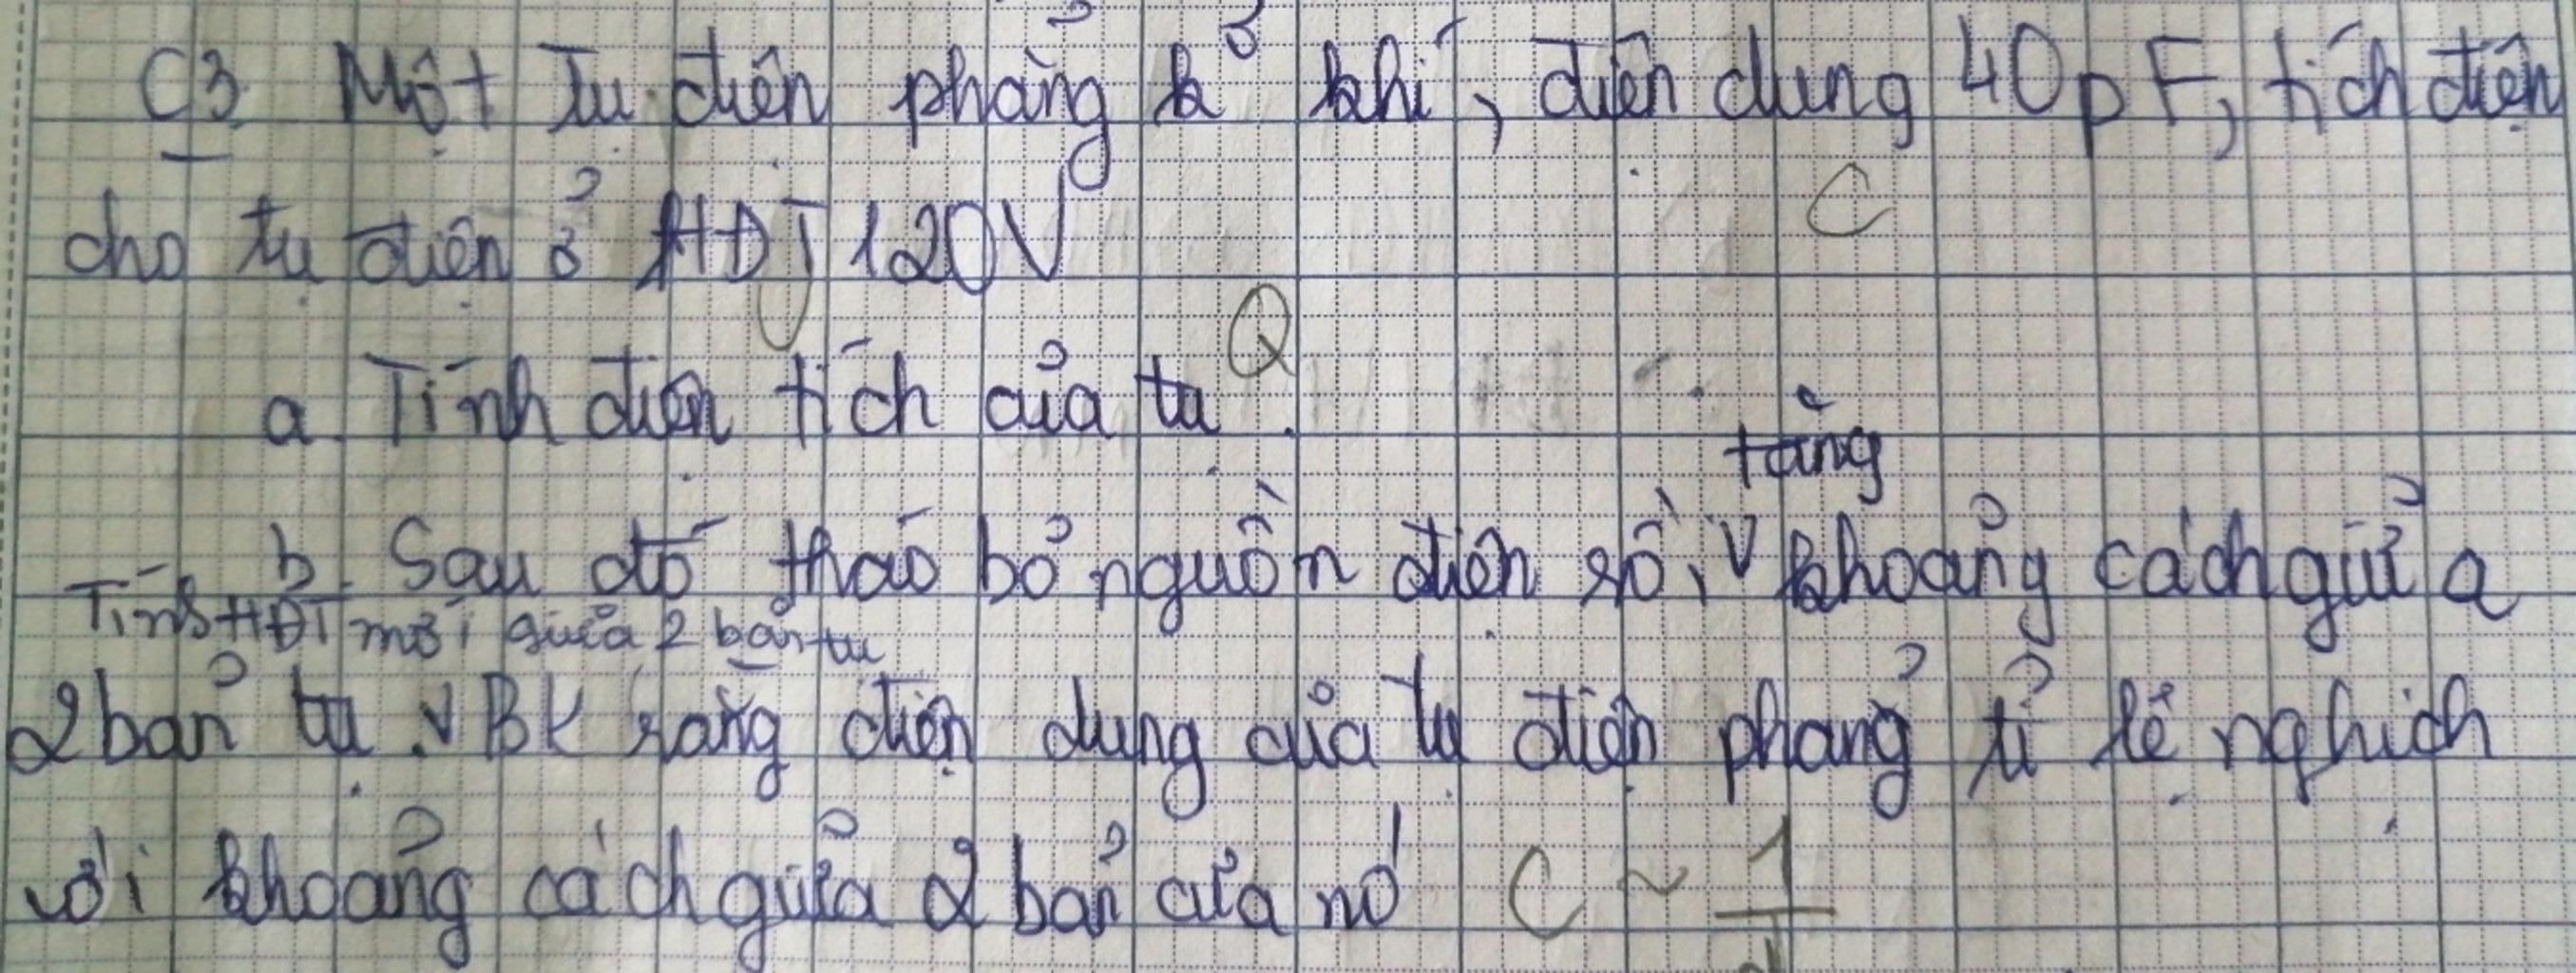 C3. Một tụ điện phẳng k° khí, điện dung 40pF, tích điện
C
cho tụ điện ở HĐT 120V
U
a. Tính điện tích của tụ. Q
tăng
b. Sau đó tháo bỏ nguồn điện rồi, V khoảng cách giữa
Tính HĐT mới giữa 2 bản tụ
2 bản tụ. V BK rằng điện dung của tụ điện phẳng tỉ lệ nghịch
với khoảng cách giữa 2 bản của nó C ~ 1/d